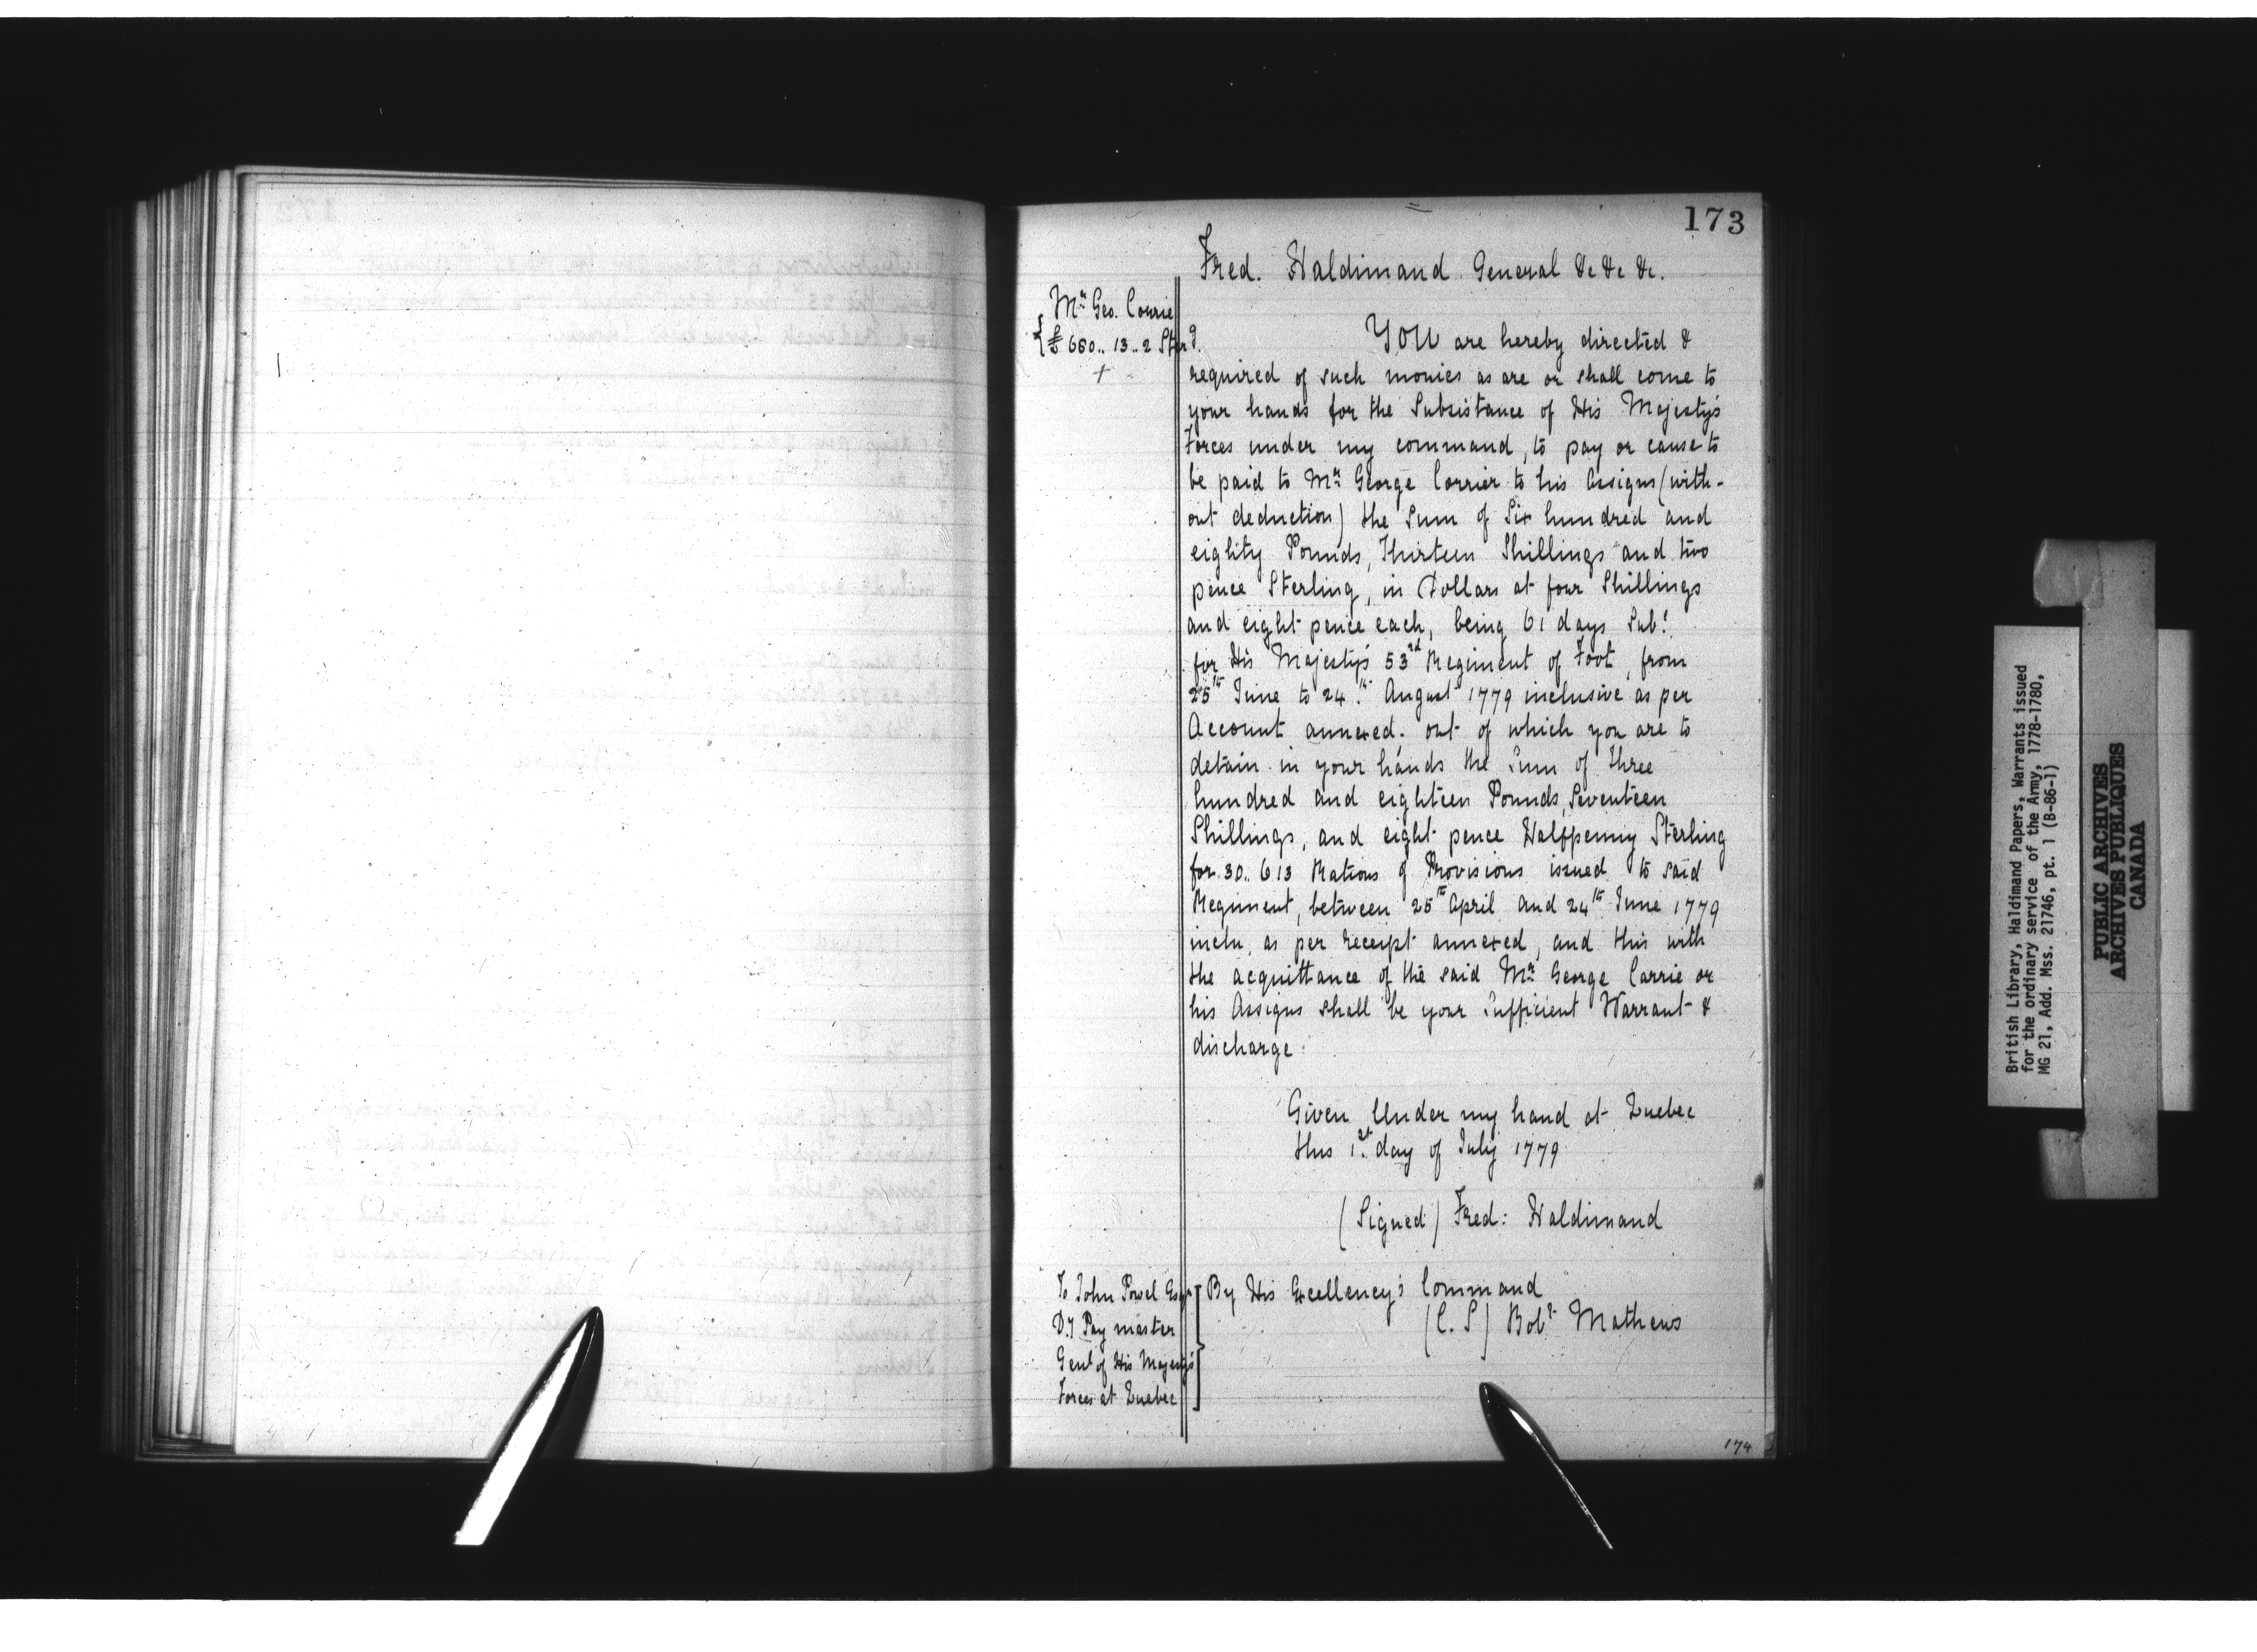 173
Fred. Haldimand General &c &c &c.
Mr Geo. Currie
£680.. 13.. 2 Sterg.
+
YOU are hereby directed &
required of such monies as are or shall come to
your hands for the Subsistance of His Majesty's
Forces under my command, to pay or cause to
be paid to Mr George Corrier to his Assigns (with-
out deduction) the Sum of Six hundred and
eighity Pounds, Thirteen Shillings and two
pence Sterling, in Dollars at four Shillings
and eight pence each, being 61 days Subt.
for His Majesty's 53rd Regiment of Foot, from
25th June to 24th August 1779 inclusive as per
Account annexed. out of which you are to
detain in your hands the Sum of Three
hundred and eighteen Pounds, Seventeen
Shillings, and eight pence Halfpenny Sterling
for 30.. 613 Rations of Provisions issued to said
Regiment, between 25th April and 24th June 1779
inclu, as per receipt annexed, and this with
the acquittance of the said Mr George Carrie or
his Assigns shall be your Sufficient Warrant &
discharge.
Given Under my hand at Quebec
this 1st day of July 1779
(Signed) Fred: Haldimand
By His Excellency's Command
(C. S) Bobt Mathews
To John Powel Esqr
Dy Pay master
Genl of His Majesty's
Forces at Quebec
174
British Library, Haldimand Papers, Warrants issued
for the ordinary service of the Army, 1778-1780,
MG 21, Add. Mss. 21746, pt. 1 (B-86-1)
PUBLIC ARCHIVES
ARCHIVES PUBLIQUES
CANADA